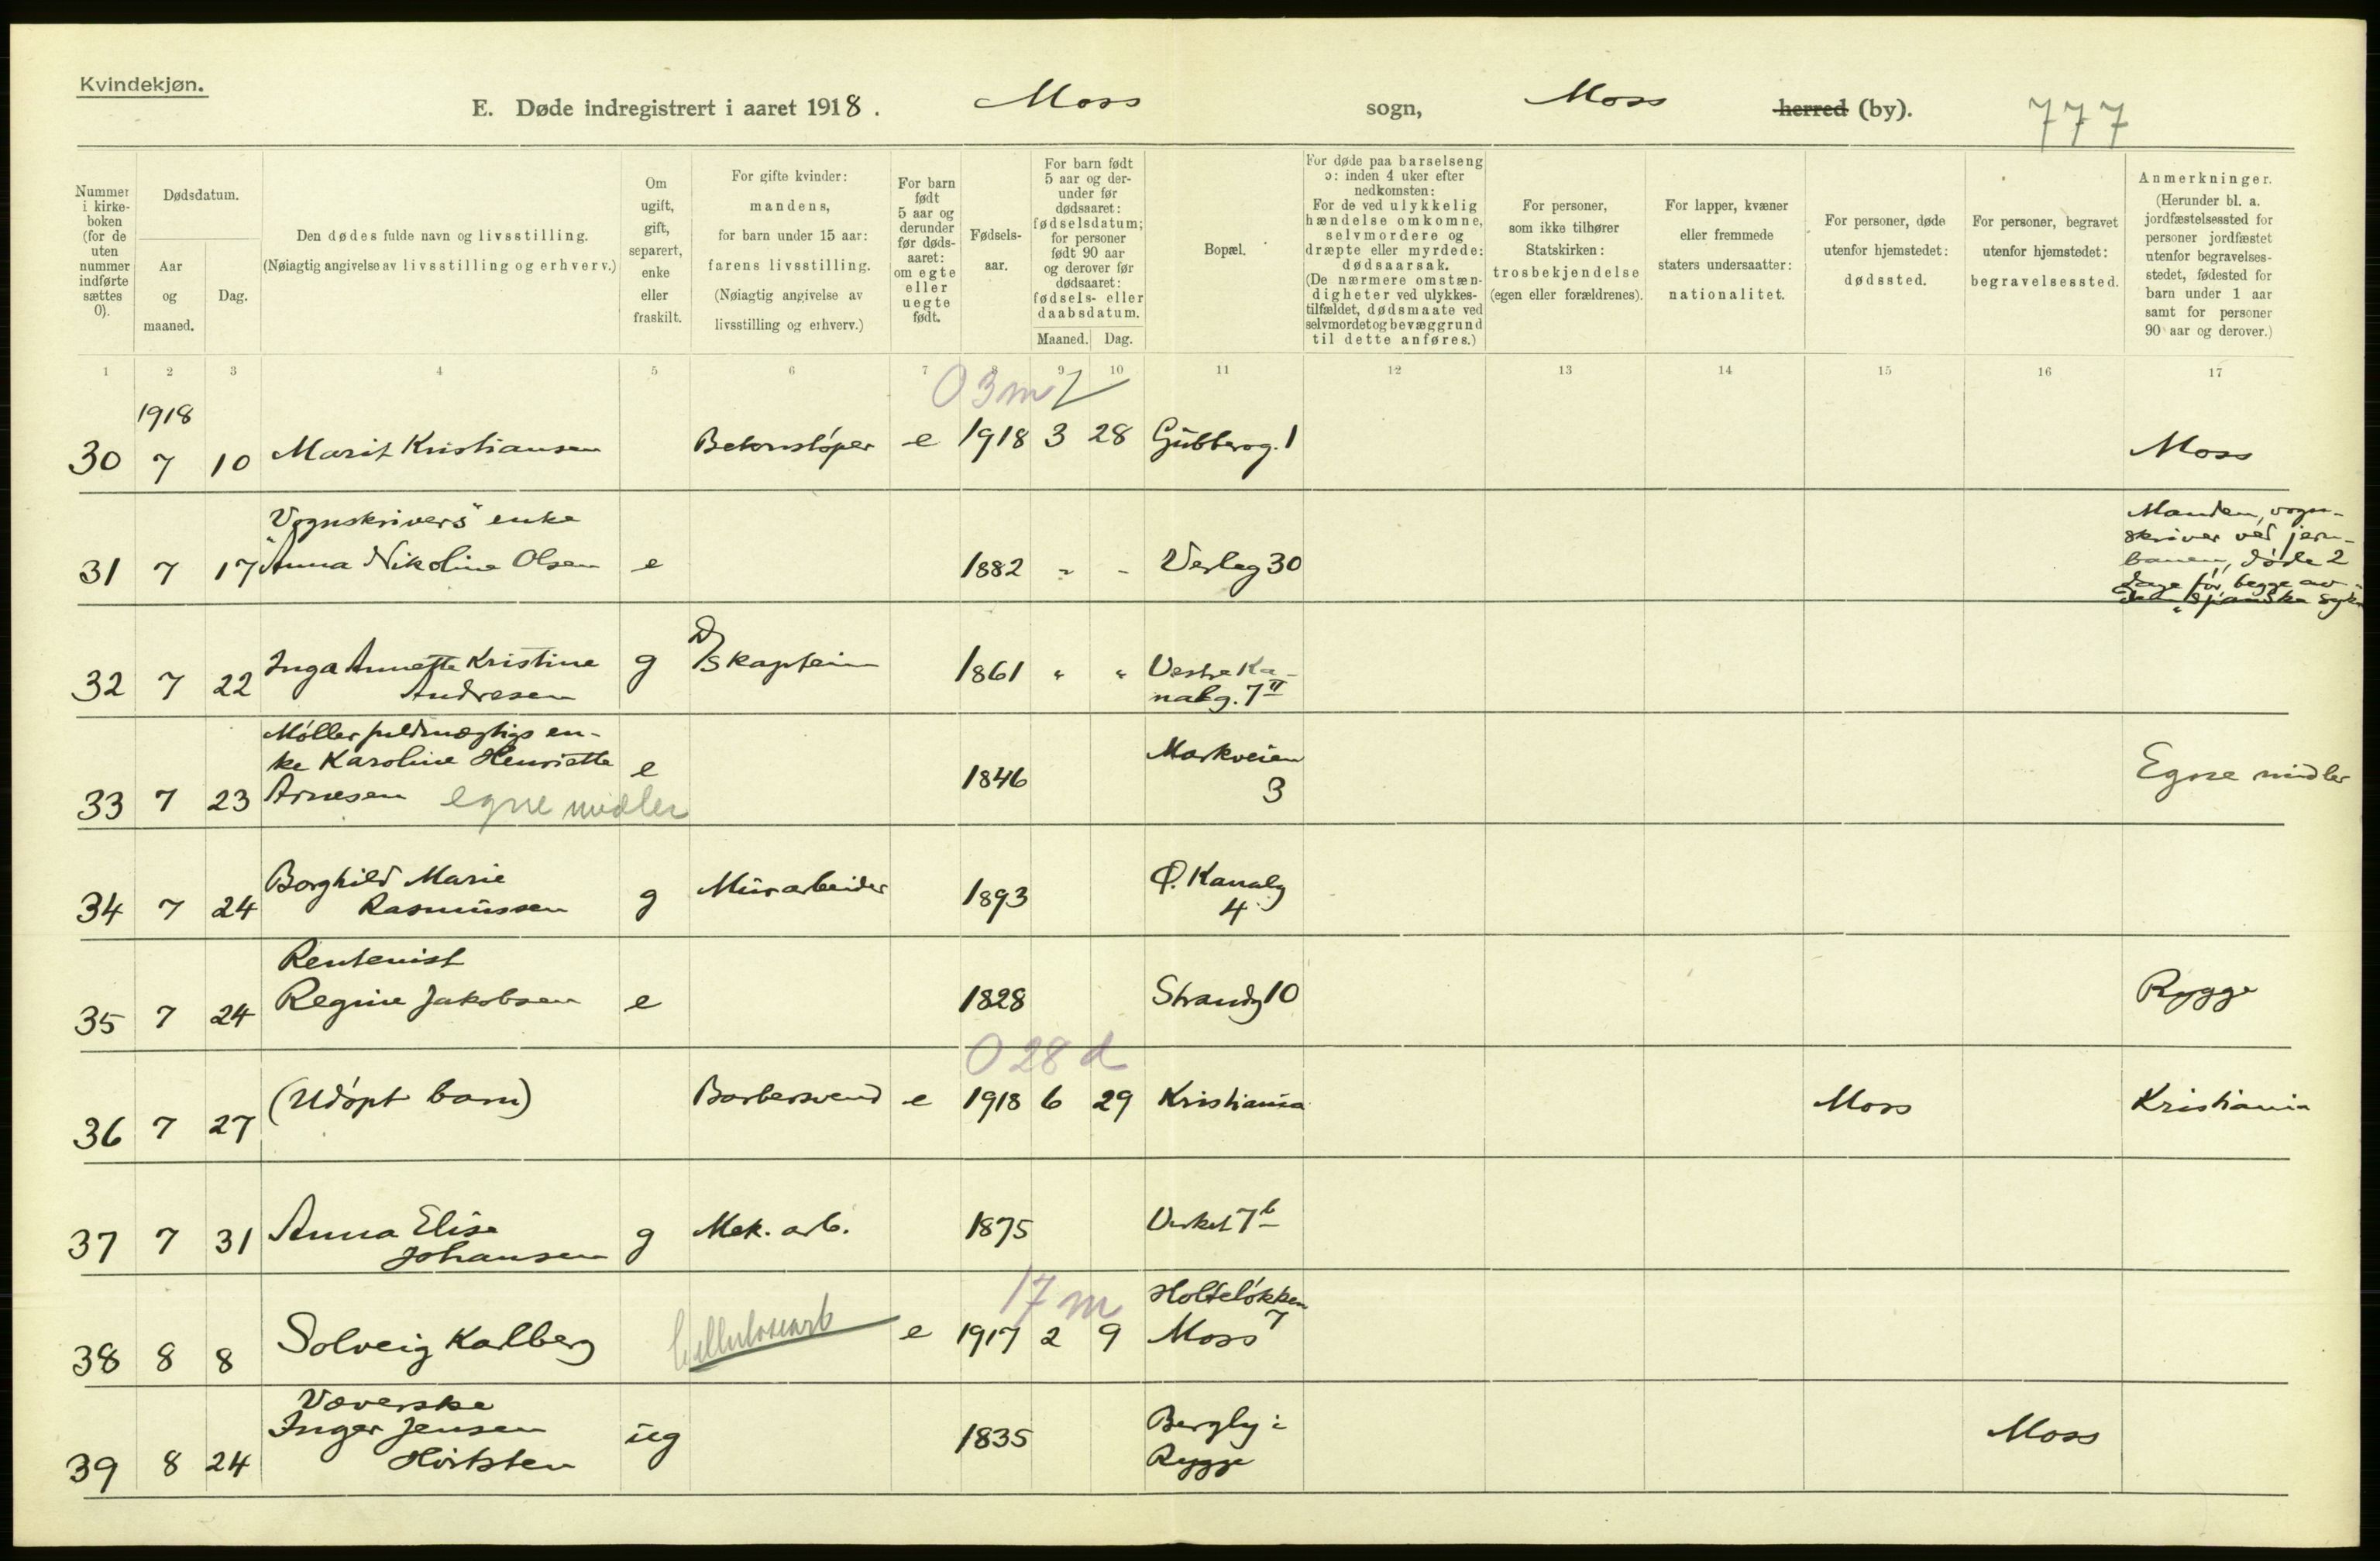 Kvindekjøn.
E. Døde indregistrert i aaret 1918. Moss sogn, Moss herred (by). 777
Nummer i kirke-boken (for de uten nummer indførte sættes 0).
Dødsdatum.
Aar og maaned.
Dag.
Den dødes fulde navn og livsstilling.
(Nøiagtig angivelse av livsstilling og erhverv.)
Om ugift, gift, separert, enke eller fraskilt.
For gifte kvinder:
mandens,
for barn under 15 aar:
farens livsstilling.
(Nøiagtig angivelse av
livsstilling og erhverv.)
For barn født 5 aar og derunder før døds-aaret: om egte eller uegte født.
Fødsels-aar.
For barn født 5 aar og der-under før dødsaaret: fødselsdatum; for personer født 90 aar og derover før dødsaaret: fødsels- eller daabsdatum.
Maaned. Dag.
Bopæl.
For døde paa barselseng
ɔ: inden 4 uker efter
nedkomsten:
For de ved ulykkelig
hændelse omkomne,
selvmordere og
dræpte eller myrdede:
dødsaarsak.
(De nærmere omstæn-
digheter ved ulykkes-
tilfældet, dødsmaate ved
selvmordet og bevæggrund
til dette anføres.)
For personer,
som ikke tilhører
Statskirken:
trosbekjendelse
(egen eller forældrenes).
For lapper, kvæner
eller fremmede
staters undersaatter:
nationalitet.
For personer, døde
utenfor hjemstedet:
dødssted.
For personer, begravet
utenfor hjemstedet:
begravelsessted.
Anmerkninger.
(Herunder bl. a.
jordfæstelsessted for
personer jordfæstet
utenfor begravelses-
stedet, fødested for
barn under 1 aar
samt for personer
90 aar og derover.)
1 2 3 4 5 6 7 8 9 10 11 12 13 14 15 16 17
0 3m
1918
30 7 10 Marit Kristiansen Betonstøper e 1918 3 28 Gubberog. 1 Moss
"Vognskrivers" enke
31 7 17 Anna Nikoline Olsen e 1882 " - Verleg 30
Manden, vogn-
skriver ved jern-
banen, døde 2
dage før, begge av
den "spanske syke
32 7 22 Inga Annette Kristine
Andresen g D/S kaptein 1861 " " Vestre Ka-
nalg. 7 II
Møllerfuldmægtigs en-
ke Karoline Henriette
33 7 23 Arnesen egne midler e 1846 Markveien
3 Egne midler
34 7 24 Borghild Marie
Rasmussen g Murarbeider 1893 Ø. Kanalg
4
Rentenist
35 7 24 Regine Jakobsen e 1828 Strandg 10 Rygge
0 28 d
36 7 27 (Udøpt barn) Barbersvend e 1918 6 29 Kristiania Moss Kristiania
37 7 31 Anna Elise
Johansen g Mek. arb. 1875 Verket 7 b
17 m
38 8 8 Solveig Karlberg Cellulosearb e 1917 2 9 Holteløkken
Moss 7
Væverske
39 8 24 Inger Jensen
ug 1835 Bergly i
Rygge Moss